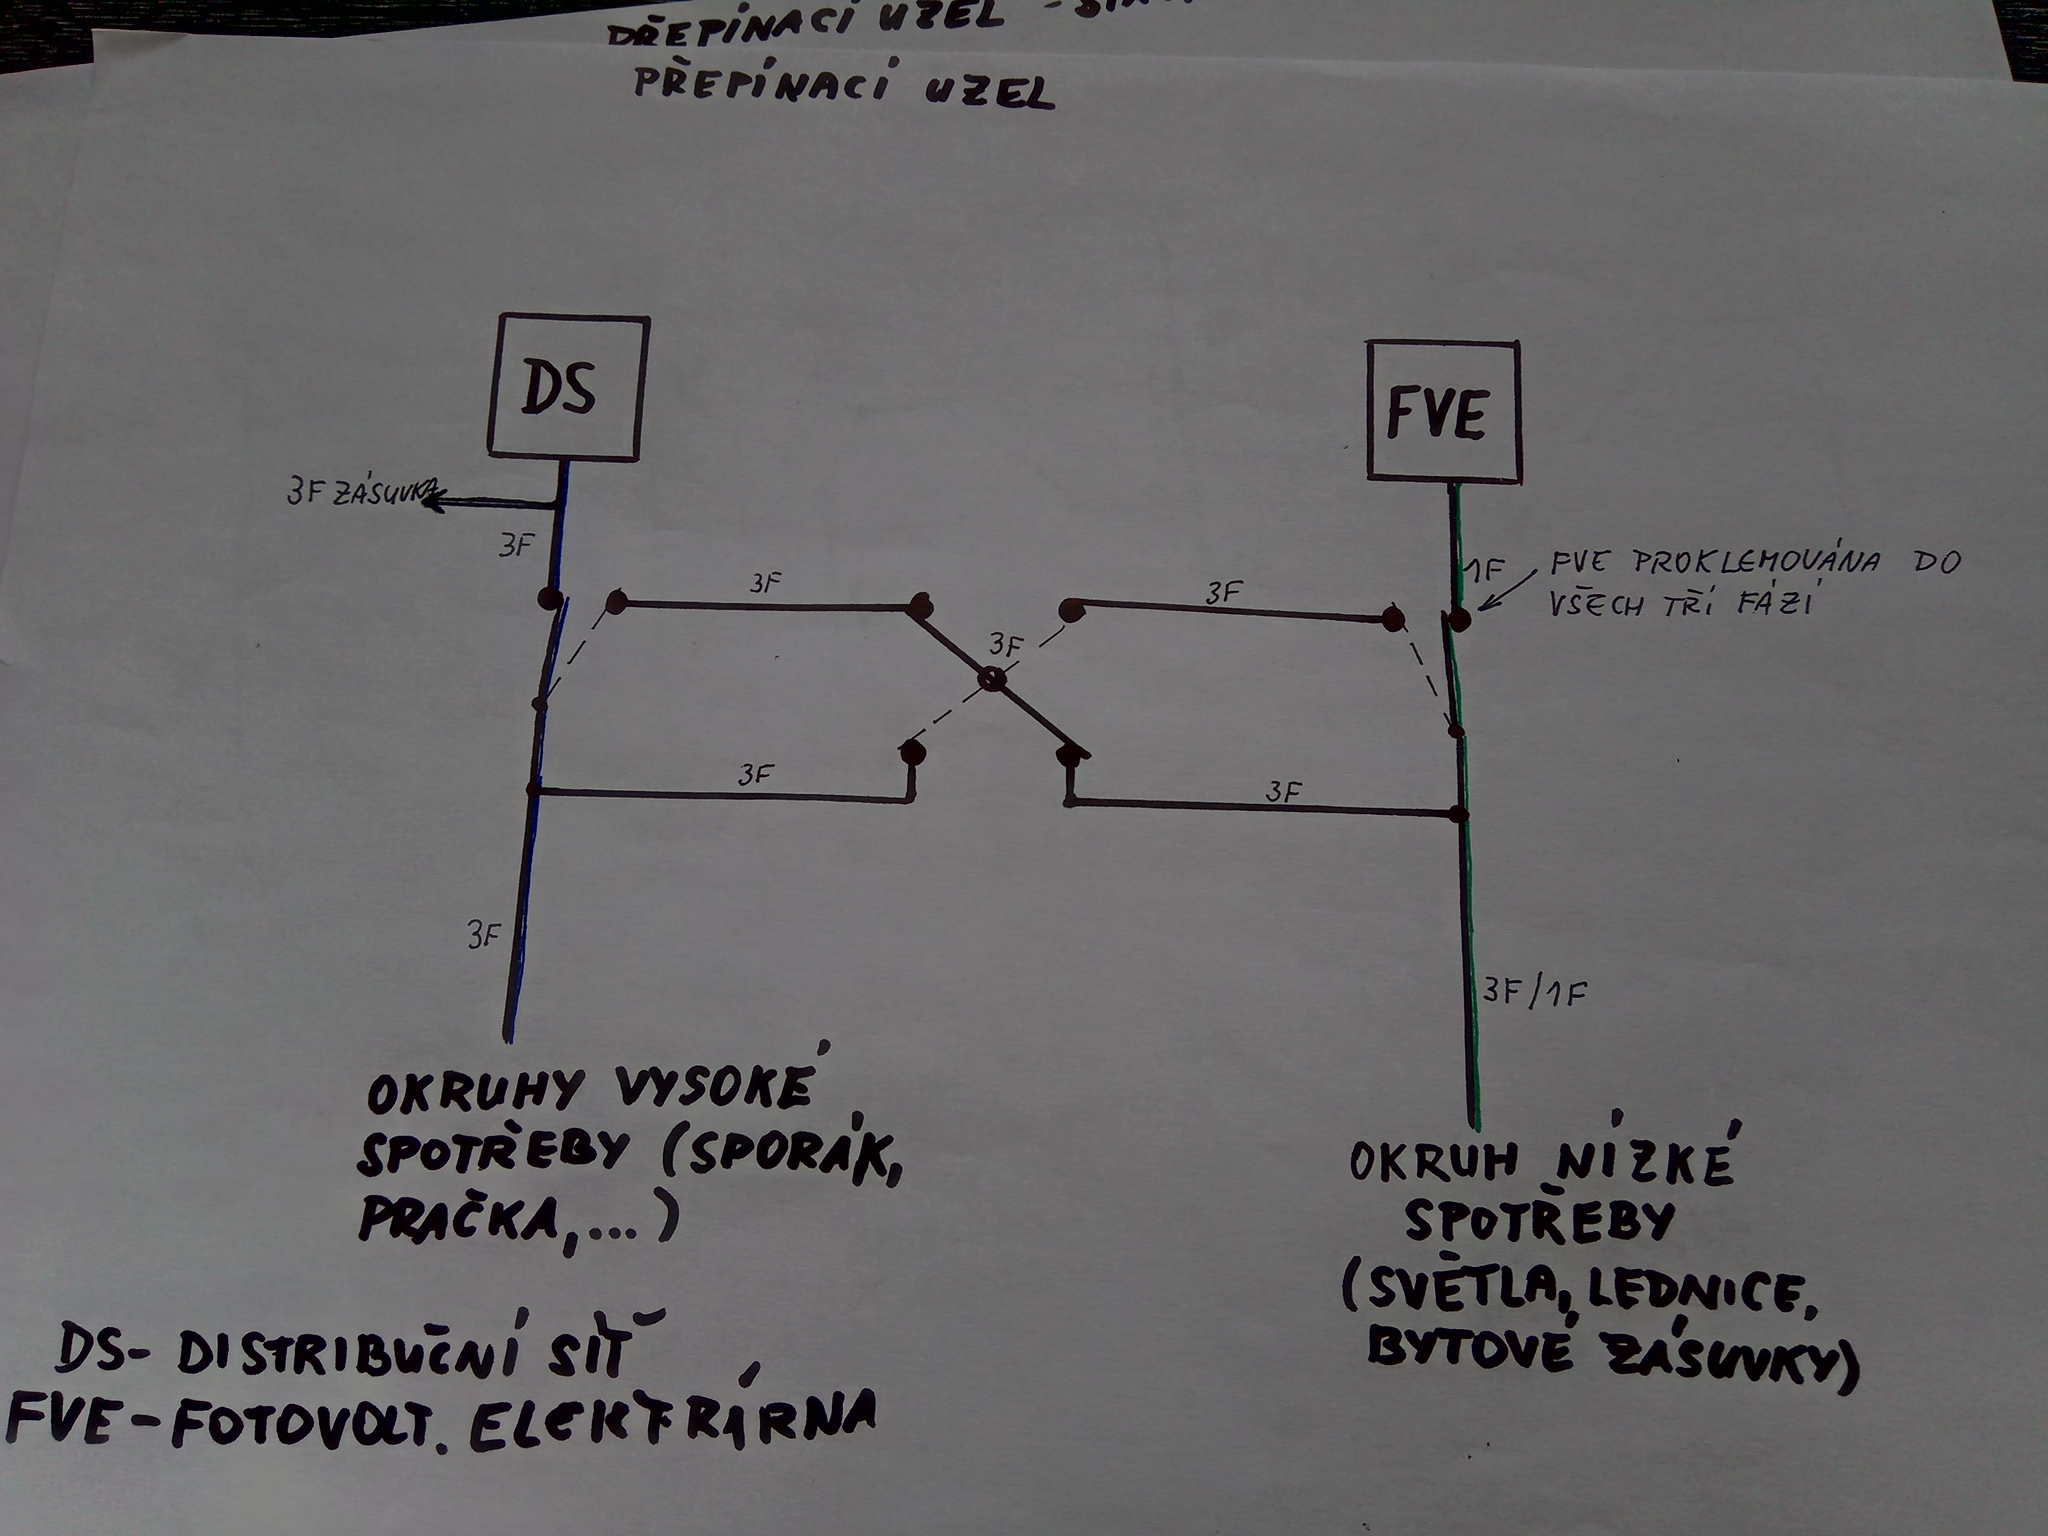 PŘEPÍNACÍ UZEL -
PŘEPÍNACÍ UZEL
DS
FVE
3F ZÁSUVKA
3F
3F
3F
3F
1F
FVE PROKLEMOVÁNA DO
VŠECH TŘÍ FÁZÍ
3F
3F
3F
3F/1F
OKRUHY VYSOKÉ
SPOTŘEBY (SPORÁK,
PRAČKA,...)
OKRUH NÍZKÉ
SPOTŘEBY
(SVĚTLA, LEDNICE,
BYTOVÉ ZÁSUVKY)
DS- DISTRIBUČNÍ SÍŤ
FVE-FOTOVOLT. ELEKTRÁRNA